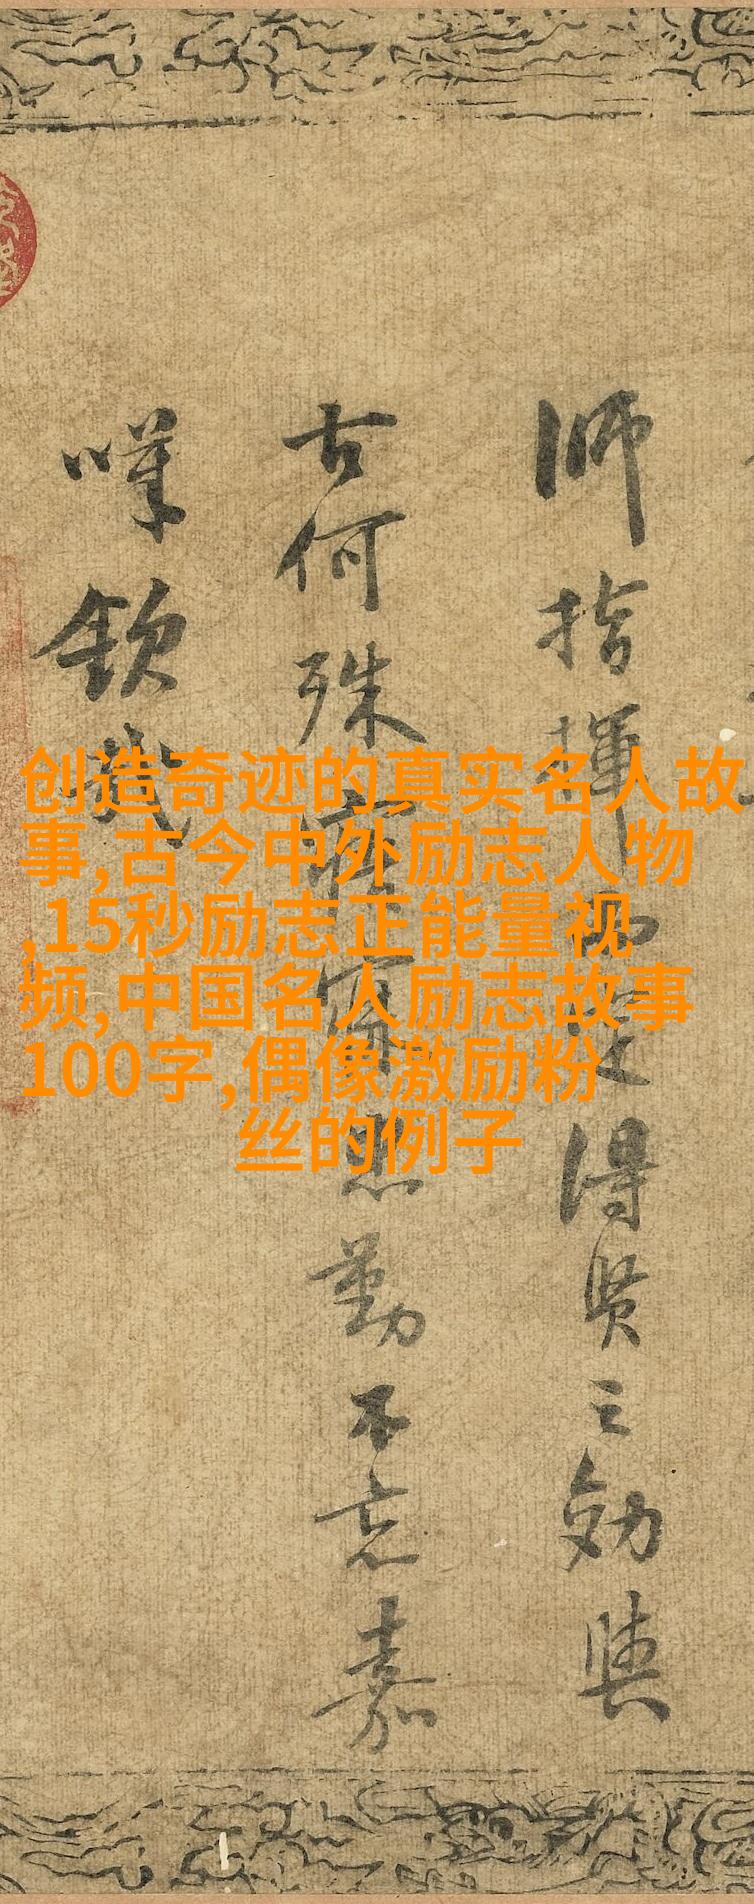 创造奇迹的真实名人故
事,古今中外励志人物
,15秒励志正能量视
频,中国名人励志故事
100字,偶像激励粉
丝的例子
師指揮而定得贤之効與
古何殊寤寐勤不忘嘉
嘆欽哉